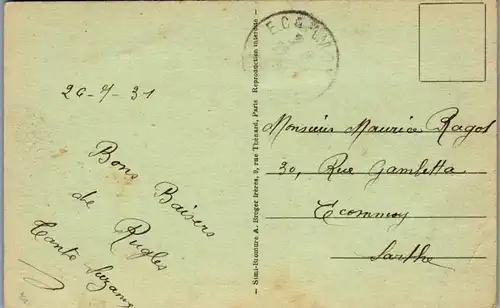 26-7-31
Bons Baisers
de Rugles
Tante Suzanne
Simi-Bromure A. Breger frères, 9, rue Thénard, Paris Reproduction interdite
Monsieur Maurice Ragot
30, Rue Gambetta
Ecommoy
Sarthe